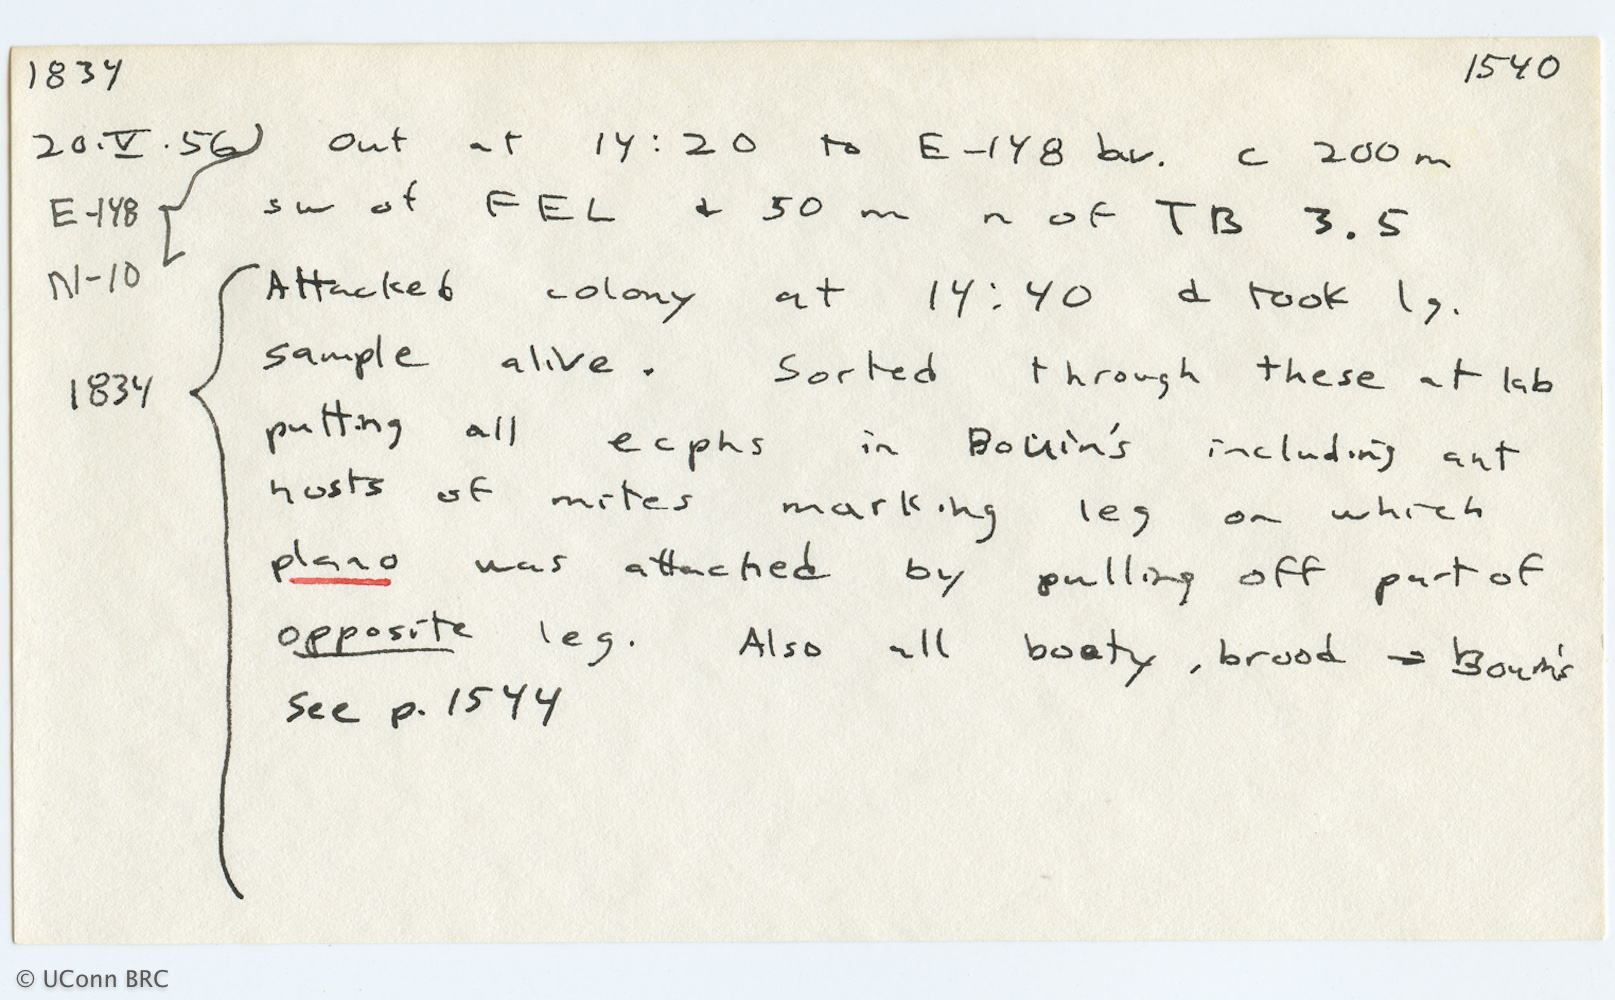 1834 1540
20.V.56) Out at 14:20 to E-148 bv. c 200 m
E-148 sw of FEL & 50 m n of TB 3.5
N-10
Attacked colony at 14:40 & took lg.
sample alive. Sorted through these at lab
1834
putting all ecphs in Bouin's including ant
hosts of mites marking leg on which
plano was attached by pulling off part of
opposite leg. Also all booty, brood → Bouin's
See p. 1544
© UConn BRC